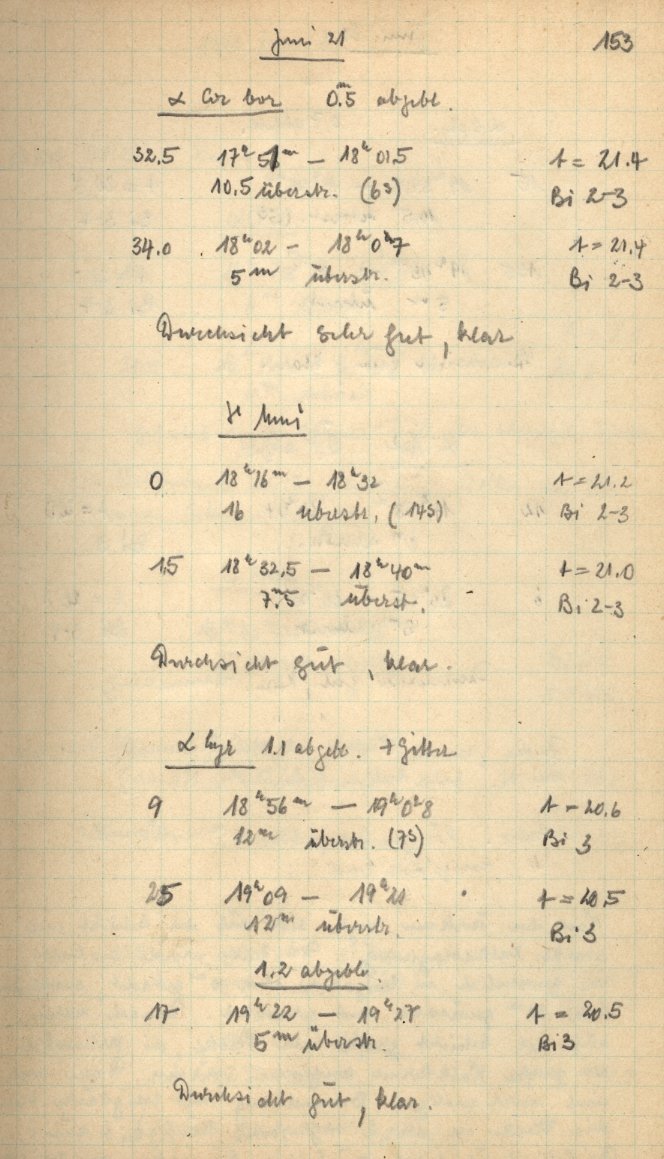 Juni 21 153
α Cor bor 0.5ᵐ abgebl.
32,5 17ʰ51ᵐ – 18ʰ01,5 t = 21.4
10.5 überstr. (6s) Bi 2-3
34.0 18ʰ02 – 18ʰ07 t = 21.4
5ᵐ überstr. Bi 2-3
Durchsicht sehr gut, klar
0 18ʰ16ᵐ – 18ʰ32 t = 21.2
16 überstr. (14s) Bi 2-3
15 18ʰ32,5 – 18ʰ40ᵐ t = 21.0
7ᵐ5 überst. Bi 2-3
Durchsicht gut, klar.
α Lyr 1.1 abgebl. + Gitter
9 18ʰ56ᵐ – 19ʰ08 t = 20.6
12ᵐ überstr. (7s) Bi 3
25 19ʰ09 – 19ʰ21 t = 20.5
12ᵐ überstr. Bi 3
1.2 abgebl.
17 19ʰ22 – 19ʰ27 t = 20.5
5ᵐ überstr. Bi 3
Durchsicht gut, klar.